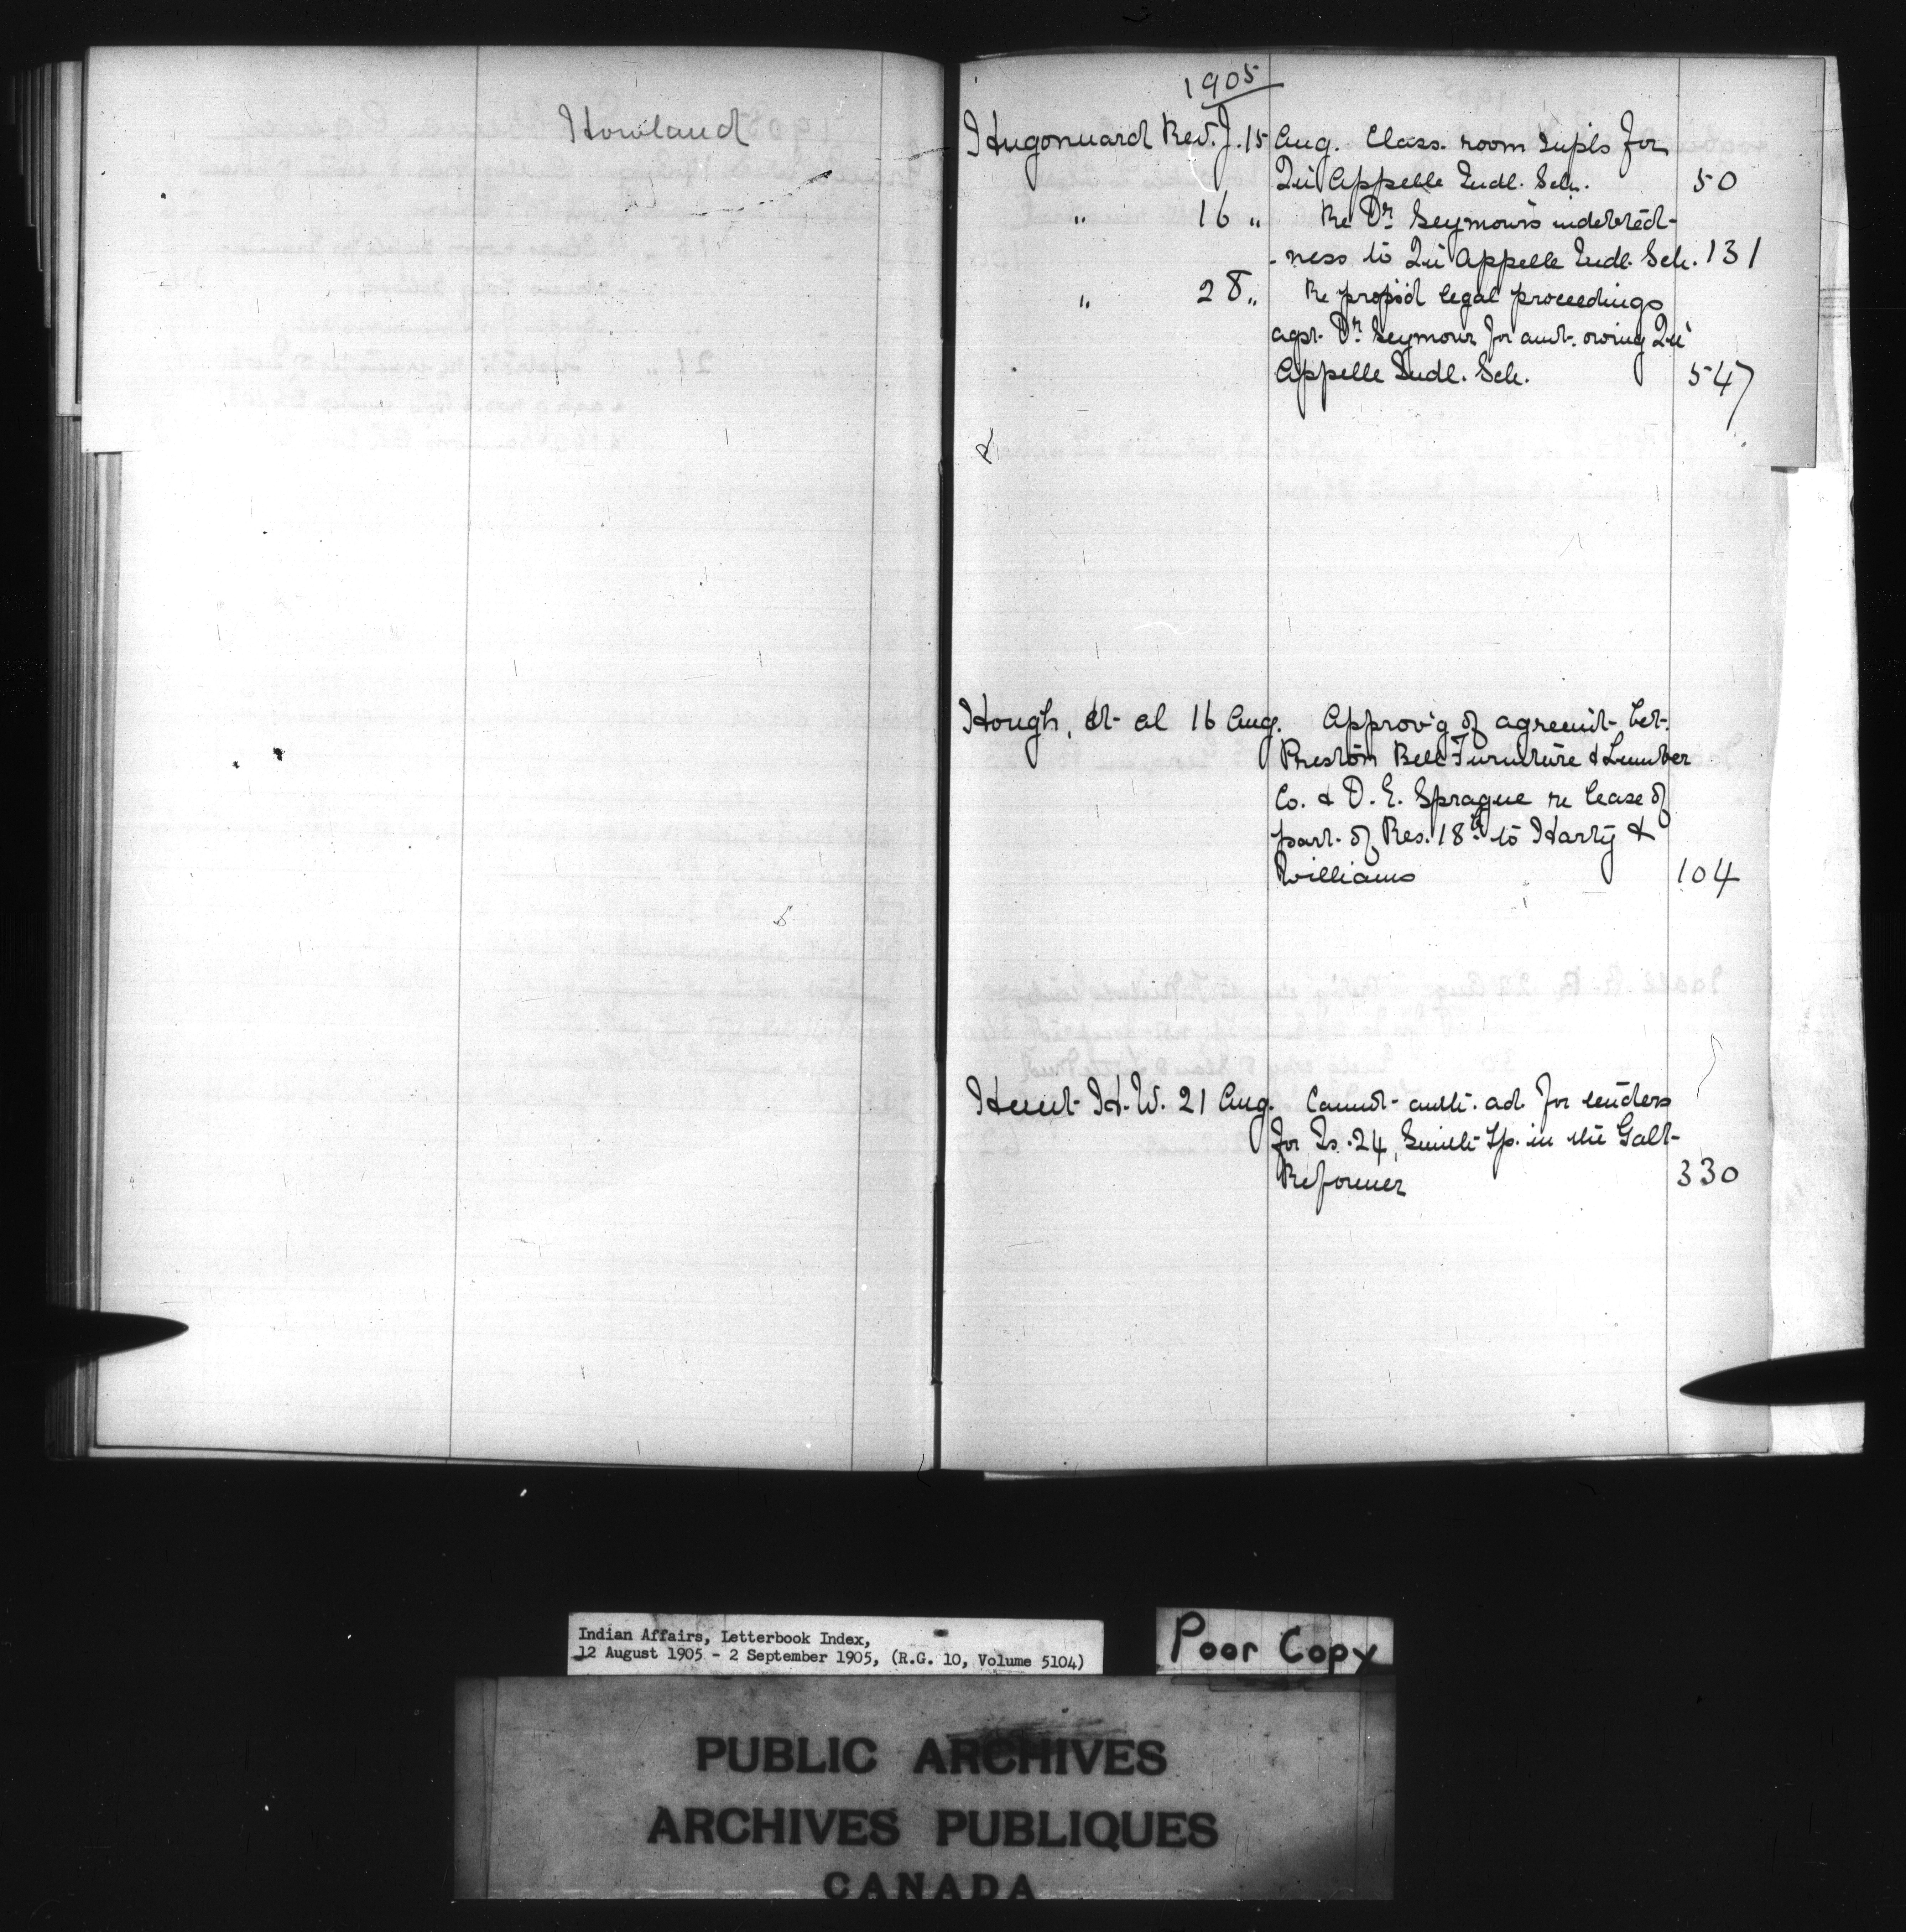 Howland
1905
Hugonnard Rev. J. 15 Aug. Class room supls for
Qu'Appelle Indl. Sch. 50
" 16 " Re Dr. Seymour's indebted-
-ness to Qu'Appelle Indl. Sch. 131
" 28 " Re propsd legal proceedings
agst. Dr. Seymour for amt. owing Qu'
Appelle Indl. Sch. 547
Hough, et al 16 Aug. Approv'g of agreemt. bet.
Preston Bell Furniture & Lumber
Co. & D. E. Sprague re lease of
part of Res. 18 to Harty &
Williams 104
Hunt H. W. 21 Aug. Cannot auth. ad. for tenders
for Is. 24, Smith Tp. in the Galt
Reformer 330
Indian Affairs, Letterbook Index,
12 August 1905 - 2 September 1905, (R.G. 10, Volume 5104)
Poor Copy
PUBLIC ARCHIVES
ARCHIVES PUBLIQUES
CANADA